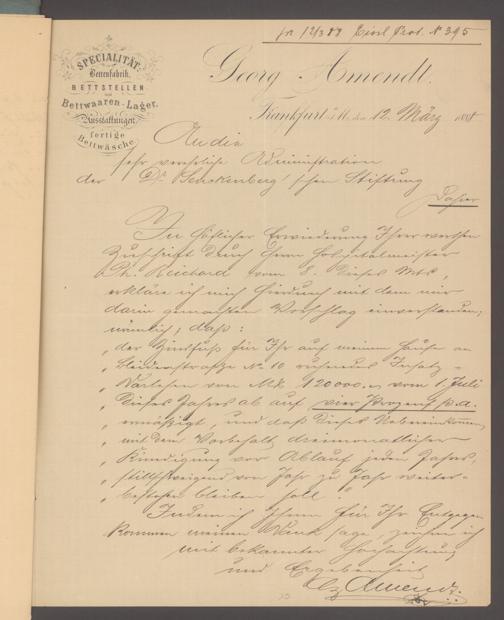 pr 12/3 88 Einl. Prot. № 395
SPECIALITÄT:
Bettenfabrik,
BETTSTELLEN
Bettwaaren-Lager,
Ausstattungen,
fertige
Bettwäsche.
Georg Amendt.
Frankfurt a/M. den 12. März 1888
An die
sehr verehrliche Administration
der Dr. Senckenberg'schen Stiftung
Dahier
In höflicher Erwiederung Ihrer werthen
Zuschrift durch Herrn Hospitalmeister
Ph. Reichard vom 8. dieses Mts,
erkläre ich mich hierdurch mit dem mir
darin gemachten Vorschlag einverstanden;
nämlich, daß:
„der Zinsfuß für Ihr auf meinem Hause an
„ Bleidenstraße № 10 ruhendes Insatz-
„ Darlehen von Mk 120000.„ vom 1. Juli
„ dieses Jahres ab auf vier Prozent p.a.
„ ermäßigt, und daß dieses Uebereinkommen,
„ mit dem Vorbehalt dreimonatlicher
„ Kündigung vor Ablauf jeden Jahres,
„ stillschweigend von Jahr zu Jahr weiter-
„ bestehen bleiben soll."
Indem ich Ihnen für Ihr Entgegen-
kommen meinen Dank sage, zeichne ich
mit bekannter Hochachtung
und Ergebenheit
Amendt.